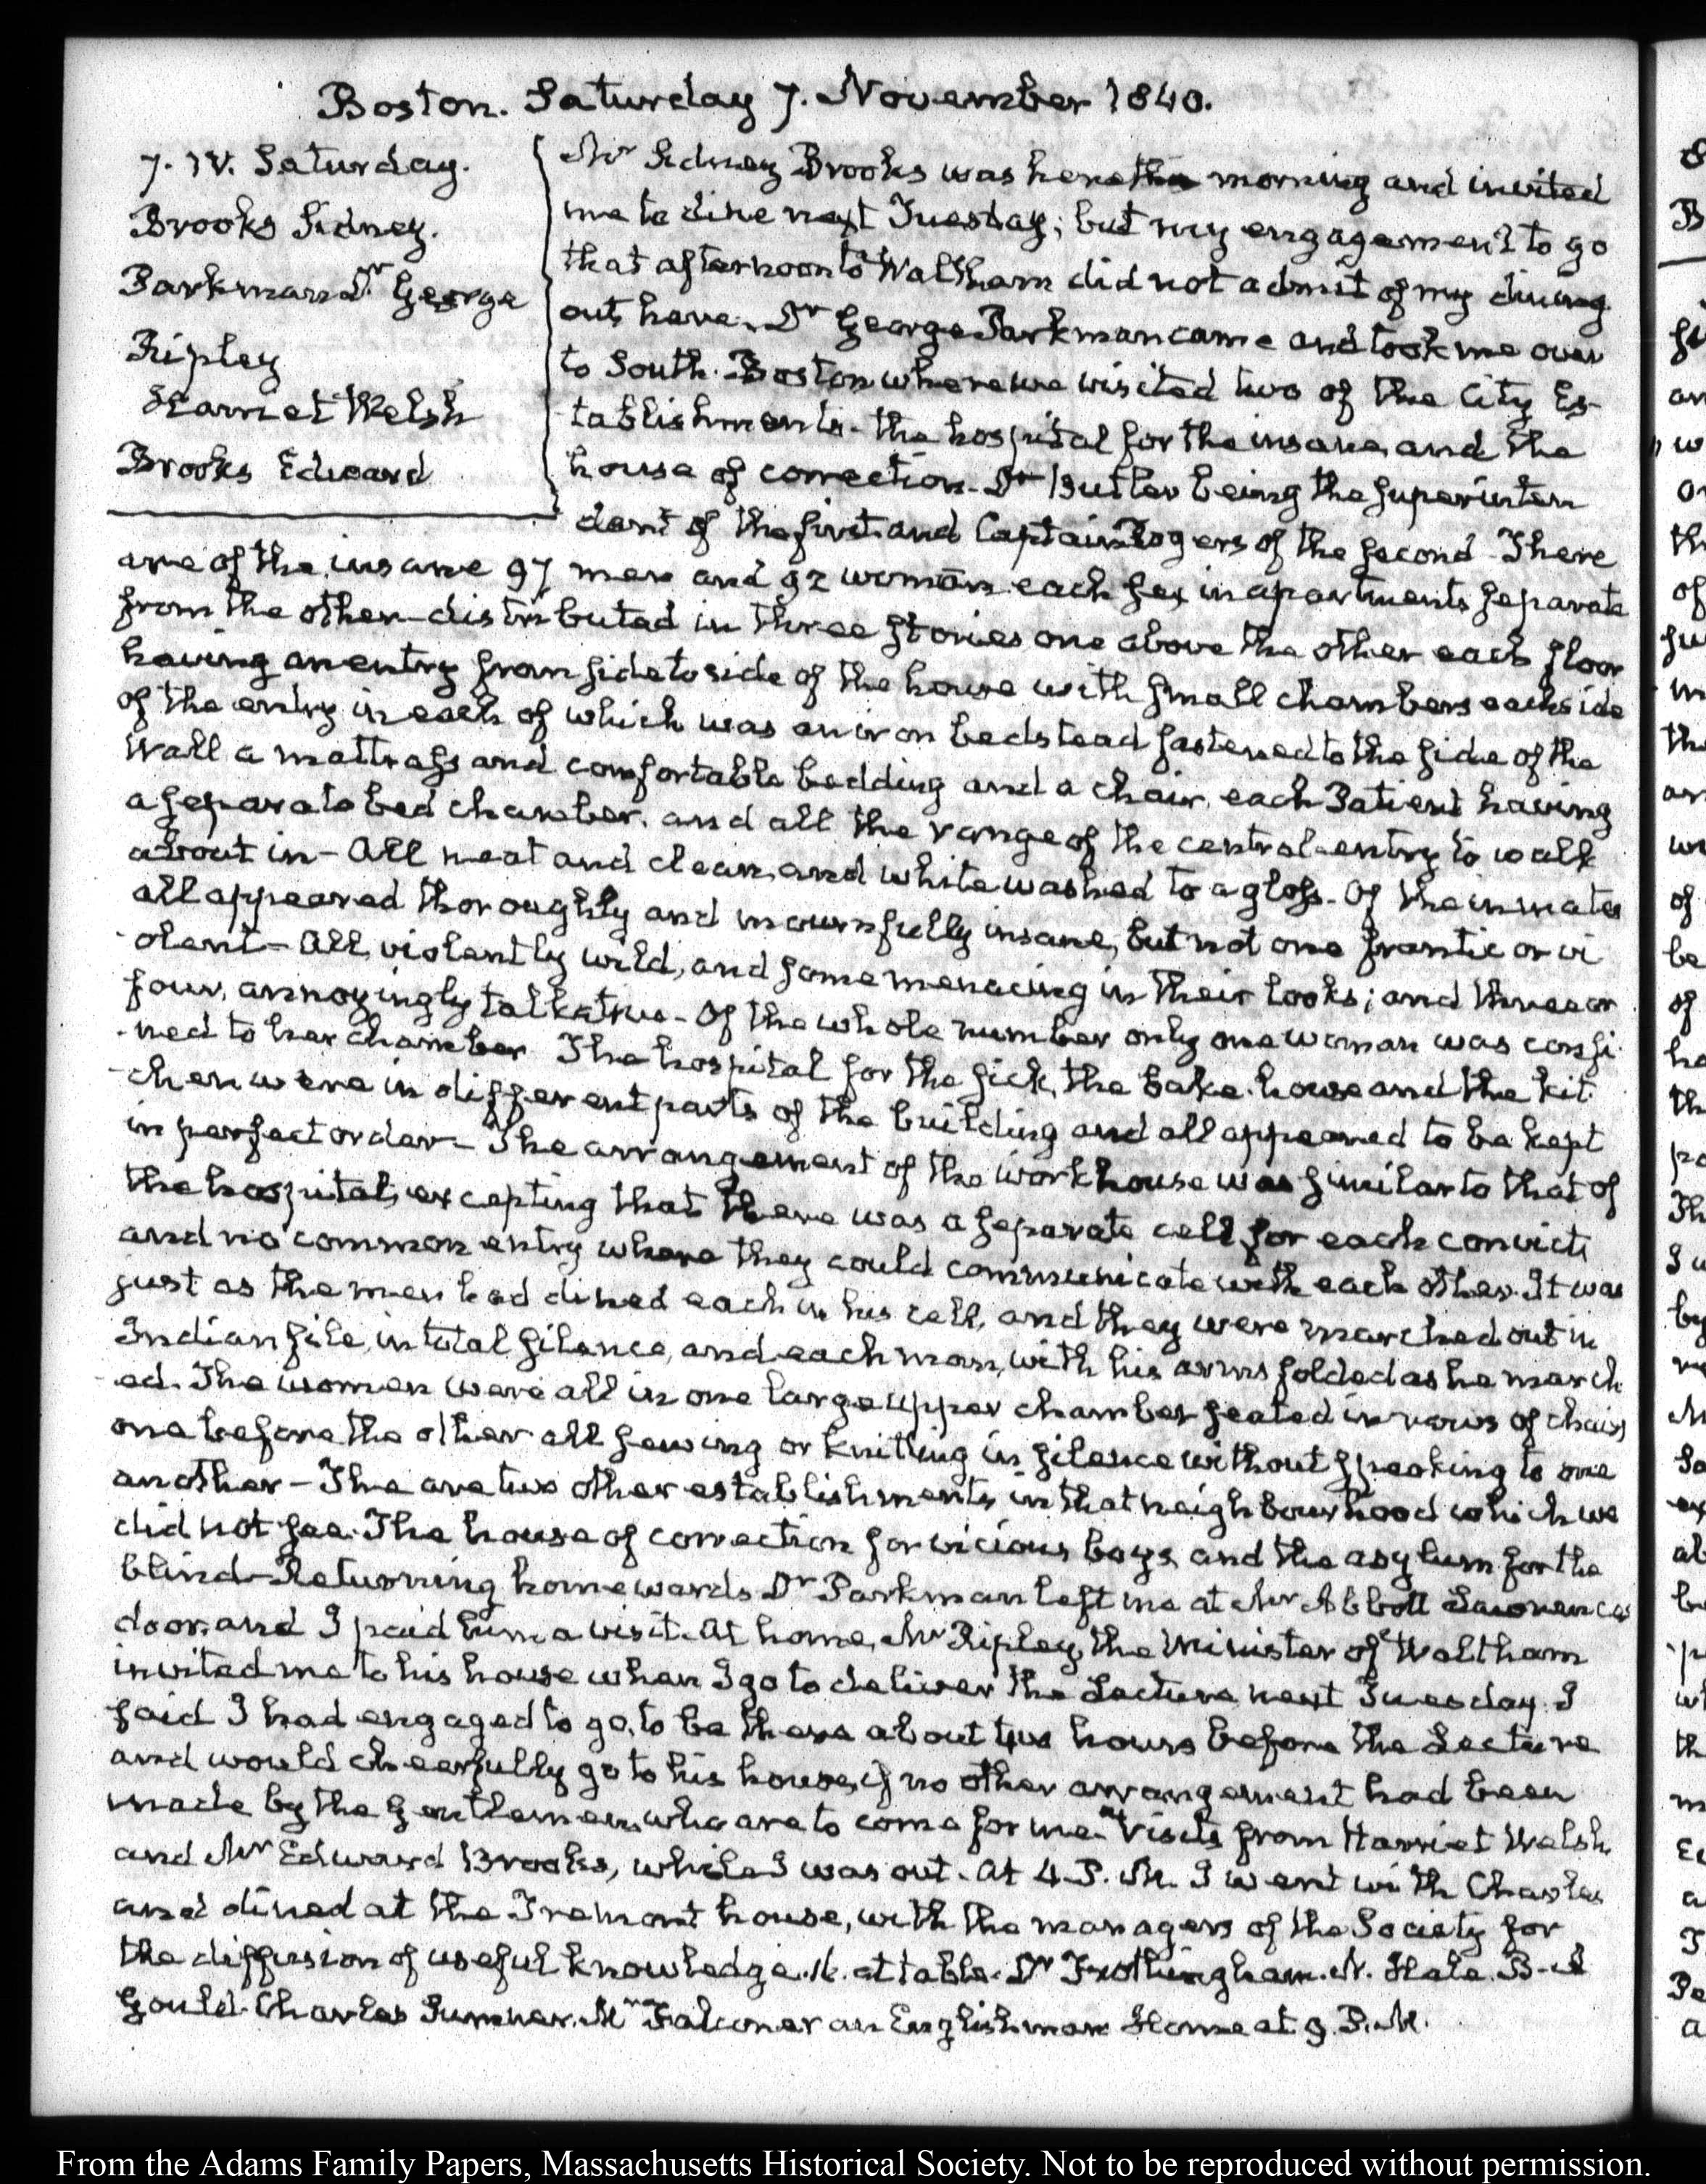 Boston. Saturday 7. November 1840.
7. IV. Saturday.
Brooks Sidney.
Parkman Dr. George
Ripley
Harriet Welsh
Brooks Edward
Mr Sidney Brooks was here this morning and invited
me to dine next Tuesday; but my engagement to go
that afternoon to Waltham did not admit of my dining
out here. Dr George Parkman came and took me over
to South-Boston where we visited two of the City Es-
tablishments- the hospital for the insane, and the
house of correction- Dr Butler being the superinten
dent of the first and Captain Rogers of the second- There
are of the insane 97 men and 92 women each sex in apartments separate
from the other- distributed in three stories one above the other each floor
having an entry from side to side of the house with small chambers each side
of the entry in each of which was an iron bedstead fastened to the side of the
Wall a mattrass and comfortable bedding and a chair, each Patient having
a separate bed chamber, and all the range of the central-entry to walk
about in- All neat and clean, and white washed to a gloss- Of the inmates
all appeared thoroughly and mournfully insane, but not one frantic or vi
-olent- All, violently wild, and some menacing in their looks; and three or
four, annoyingly talkative- Of the whole number only one woman was confi-
-ned to her chamber. The hospital for the sick, the bake-house and the kit-
-chen were in different parts of the building and all appeared to be kept
in perfect order- The arrangement of the work house was similar to that of
the hospital, excepting that there was a separate cell for each convict
and no common entry where they could communicate with each other. It was
just as the men had dined each in his cell, and they were marched out in
Indian file, in total silence, and each man, with his arms folded as he march
-ed. The women were all in one large upper chamber seated in rows of chairs
one before the other all sewing or knitting in silence without speaking to one
another- The are two other establishments in that neighbourhood which we
did not see. The house of correction for vicious boys, and the asylum for the
blind- Returning homewards Dr Parkman left me at Mr Abbott Lawrence's
door, and I paid him a visit. At home, Mr Ripley, the Minister of Waltham
invited me to his house when I go to deliver the Lecture next Tuesday. I
said I had engaged to go, to be there about two hours before the Lecture
and would cheerfully go to his house, if no other arrangement had been
made by the Gentlemen, who are to come for me. Visits from Harriet Welsh
and Mr Edward Brooks, while I was out. At 4. P.M. I went with Charles
and dined at the Tremont house, with the managers of the Society for
the diffusion of useful knowledge. 16. at table. Dr Frothingham. N. Hale. B. A
Gould. Charles Sumner. Mr Falconer an Englishman Home at 9. P.M.
From the Adams Family Papers, Massachusetts Historical Society. Not to be reproduced without permission.